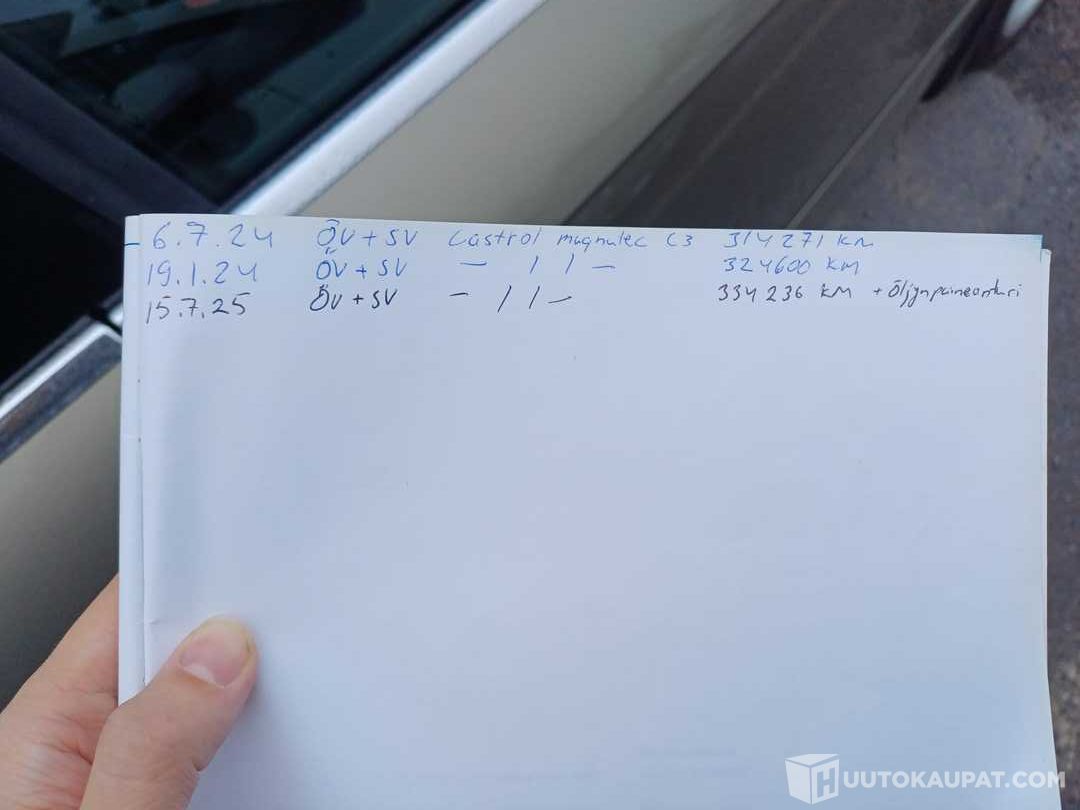 6.7.24 ÖV + SV Castrol magnatec C3 314 271 KM
19.1.24 ÖV + SV — / / — 324600 KM
15.7.25 ÖV + SV — / / — 334 236 KM + Öljynpaineanturi
HUUTOKAUPAT.COM